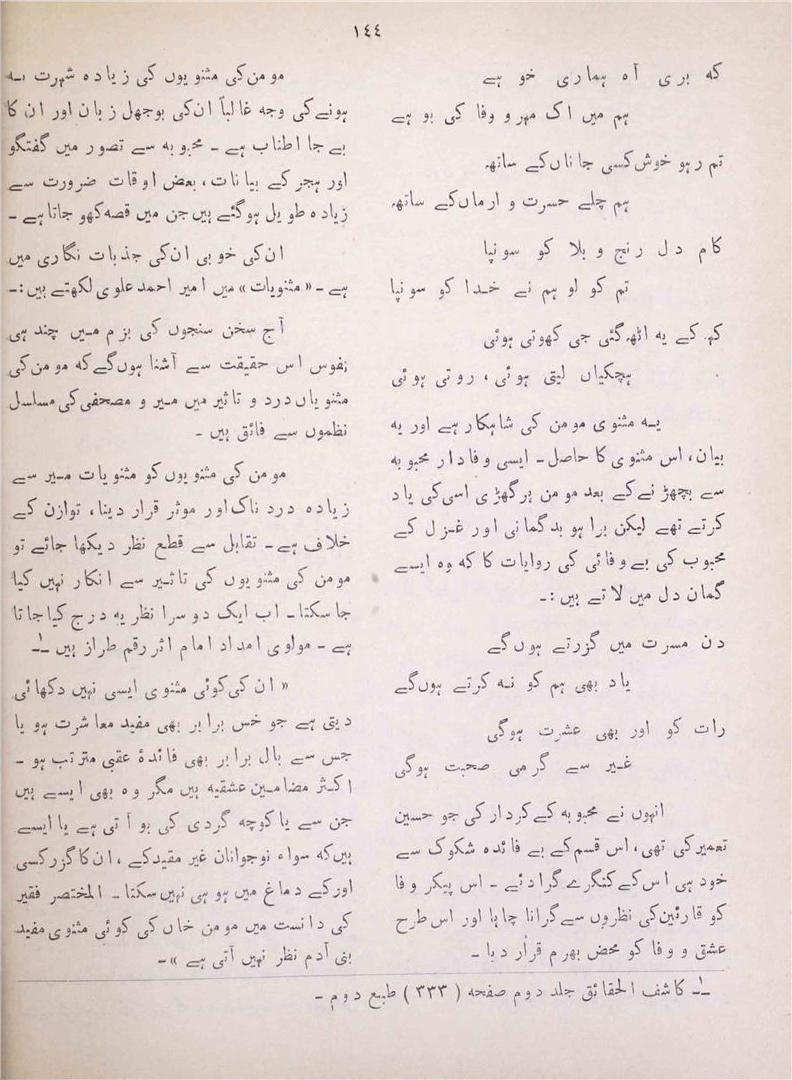 ١٤٤
که بری آہ ہماری خو ہے
ہم میں اک مہر و وفا کی بو ہے
تم رہو خوش کسی جاناں کے ساتھ
ہم چلے حسرت و ارماں کے ساتھ
کام دل رنج و بلا کو سونپا
تم کو لو ہم نے خدا کو سونپا
کہہ کے یہ اٹھ گئی جی کھوتی ہوئی
ہچکیاں لیتی ہوئی، روتی ہوئی
یہ مثنوی مومن کی شاہکار ہے اور یہ
بیان، اس مثنوی کا حاصل۔ ایسی وفادار محبوبہ
سے بچھڑنے کے بعد مومن ہر گھڑی اسی کی یاد
کرتے تھے لیکن برا ہو بدگمانی اور غزل کے
محبوب کی بے وفائی کی روایات کا کہ وہ ایسے
گمان دل میں لاتے ہیں :۔
دن مسرت میں گزرتے ہوں گے
یاد بھی ہم کو نہ کرتے ہوں گے
رات کو اور بھی عشرت ہوگی
غیر سے گرمی صحبت ہوگی
انہوں نے محبوبہ کے کردار کی جو حسین
تعمیر کی تھی، اس قسم کے بے فائدہ شکوک سے
خود ہی اس کے کنگرے گرا دئے ۔ اس پیکر وفا
کو قارئین کی نظروں سے گرانا چاہا اور اس طرح
عشق و وفا کو محض بھرم قرار دیا ۔
مومن کی مثنویوں کی زیادہ شہرت نہ
ہونے کی وجہ غالباً ان کی بوجھل زبان اور ان کا
بے جا اطناب ہے ۔ محبوبہ سے تصور میں گفتگو
اور ہجر کے بیانات، بعض اوقات ضرورت سے
زیادہ طویل ہوگئے ہیں جن میں قصہ کھو جاتا ہے ۔
ان کی خوبی ان کی جذبات نگاری میں
ہے ۔ «مثنویات» میں امیر احمد علوی لکھتے ہیں :۔
آج سخن سنجوں کی بزم میں چند ہی
نفوس اس حقیقت سے آشنا ہوں گے کہ مومن کی
مثنویاں درد و تاثیر میں میر و مصحفی کی مسلسل
نظموں سے فائق ہیں ۔
مومن کی مثنویوں کو مثنویات میر سے
زیادہ درد ناک اور موثر قرار دینا، توازن کے
خلاف ہے ۔ تقابل سے قطع نظر دیکھا جائے تو
مومن کی مثنویوں کی تاثیر سے انکار نہیں کیا
جا سکتا ۔ اب ایک دوسرا نظریہ درج کیا جاتا
ہے ۔ مولوی امداد امام اثر رقم طراز ہیں ۱؎
« ان کی کوئی مثنوی ایسی نہیں دکھائی
دیتی ہے جو خس برابر بھی مفید معاشرت ہو یا
جس سے بال برابر بھی فائدۂ عقبی مترتب ہو ۔
اکثر مضامین عشقیہ ہیں مگر وہ بھی ایسے ہیں
جن سے یا کوچہ گردی کی بو آتی ہے یا ایسے
ہیں کہ سواء نوجوانان غیر مقید کے، ان کا گزر کسی
اور کے دماغ میں ہو ہی نہیں سکتا ۔ المختصر فقیر
کی دانست میں مومن خاں کی کوئی مثنوی مفید
بنی آدم نظر نہیں آتی ہے »۔
۱؎ کاشف الحقائق جلد دوم صفحہ (٣٣٣) طبع دوم ۔